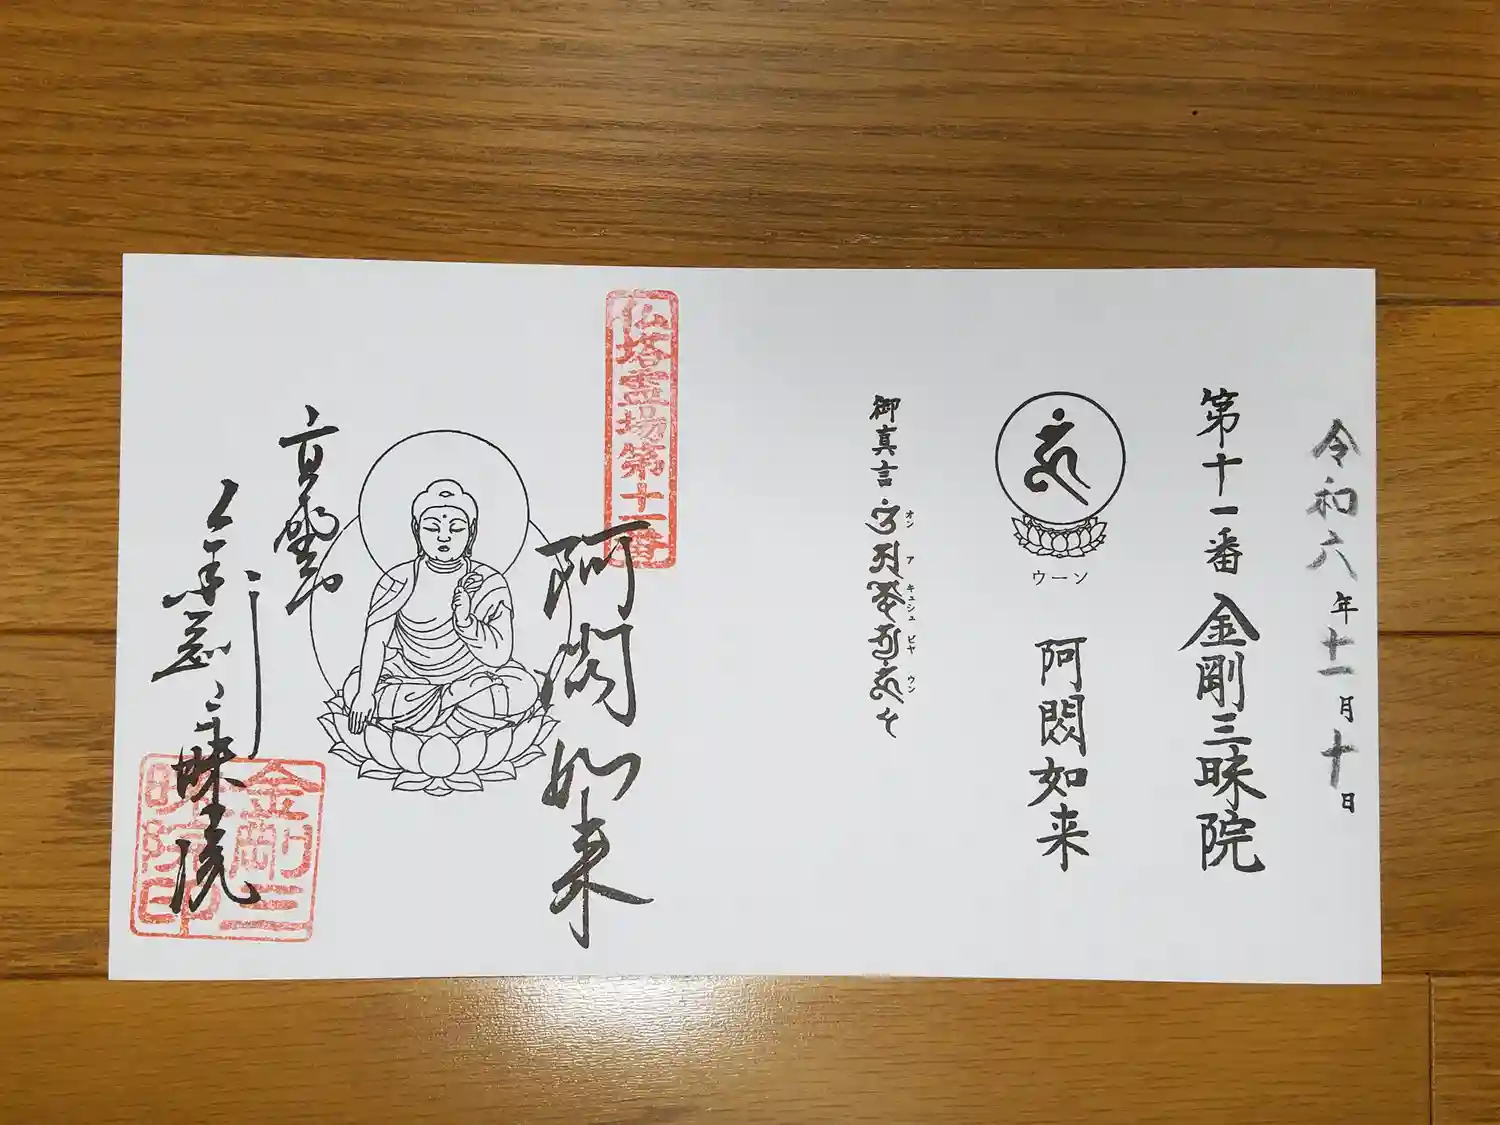 令和六年十一月十日
第十一番 金剛三昧院
ウーン
阿閦如来
御真言
オン ア キュシュ ビヤ ウン
仏塔霊場第十一番
阿閦如来
高野山
金剛三昧院
金剛三昧院印